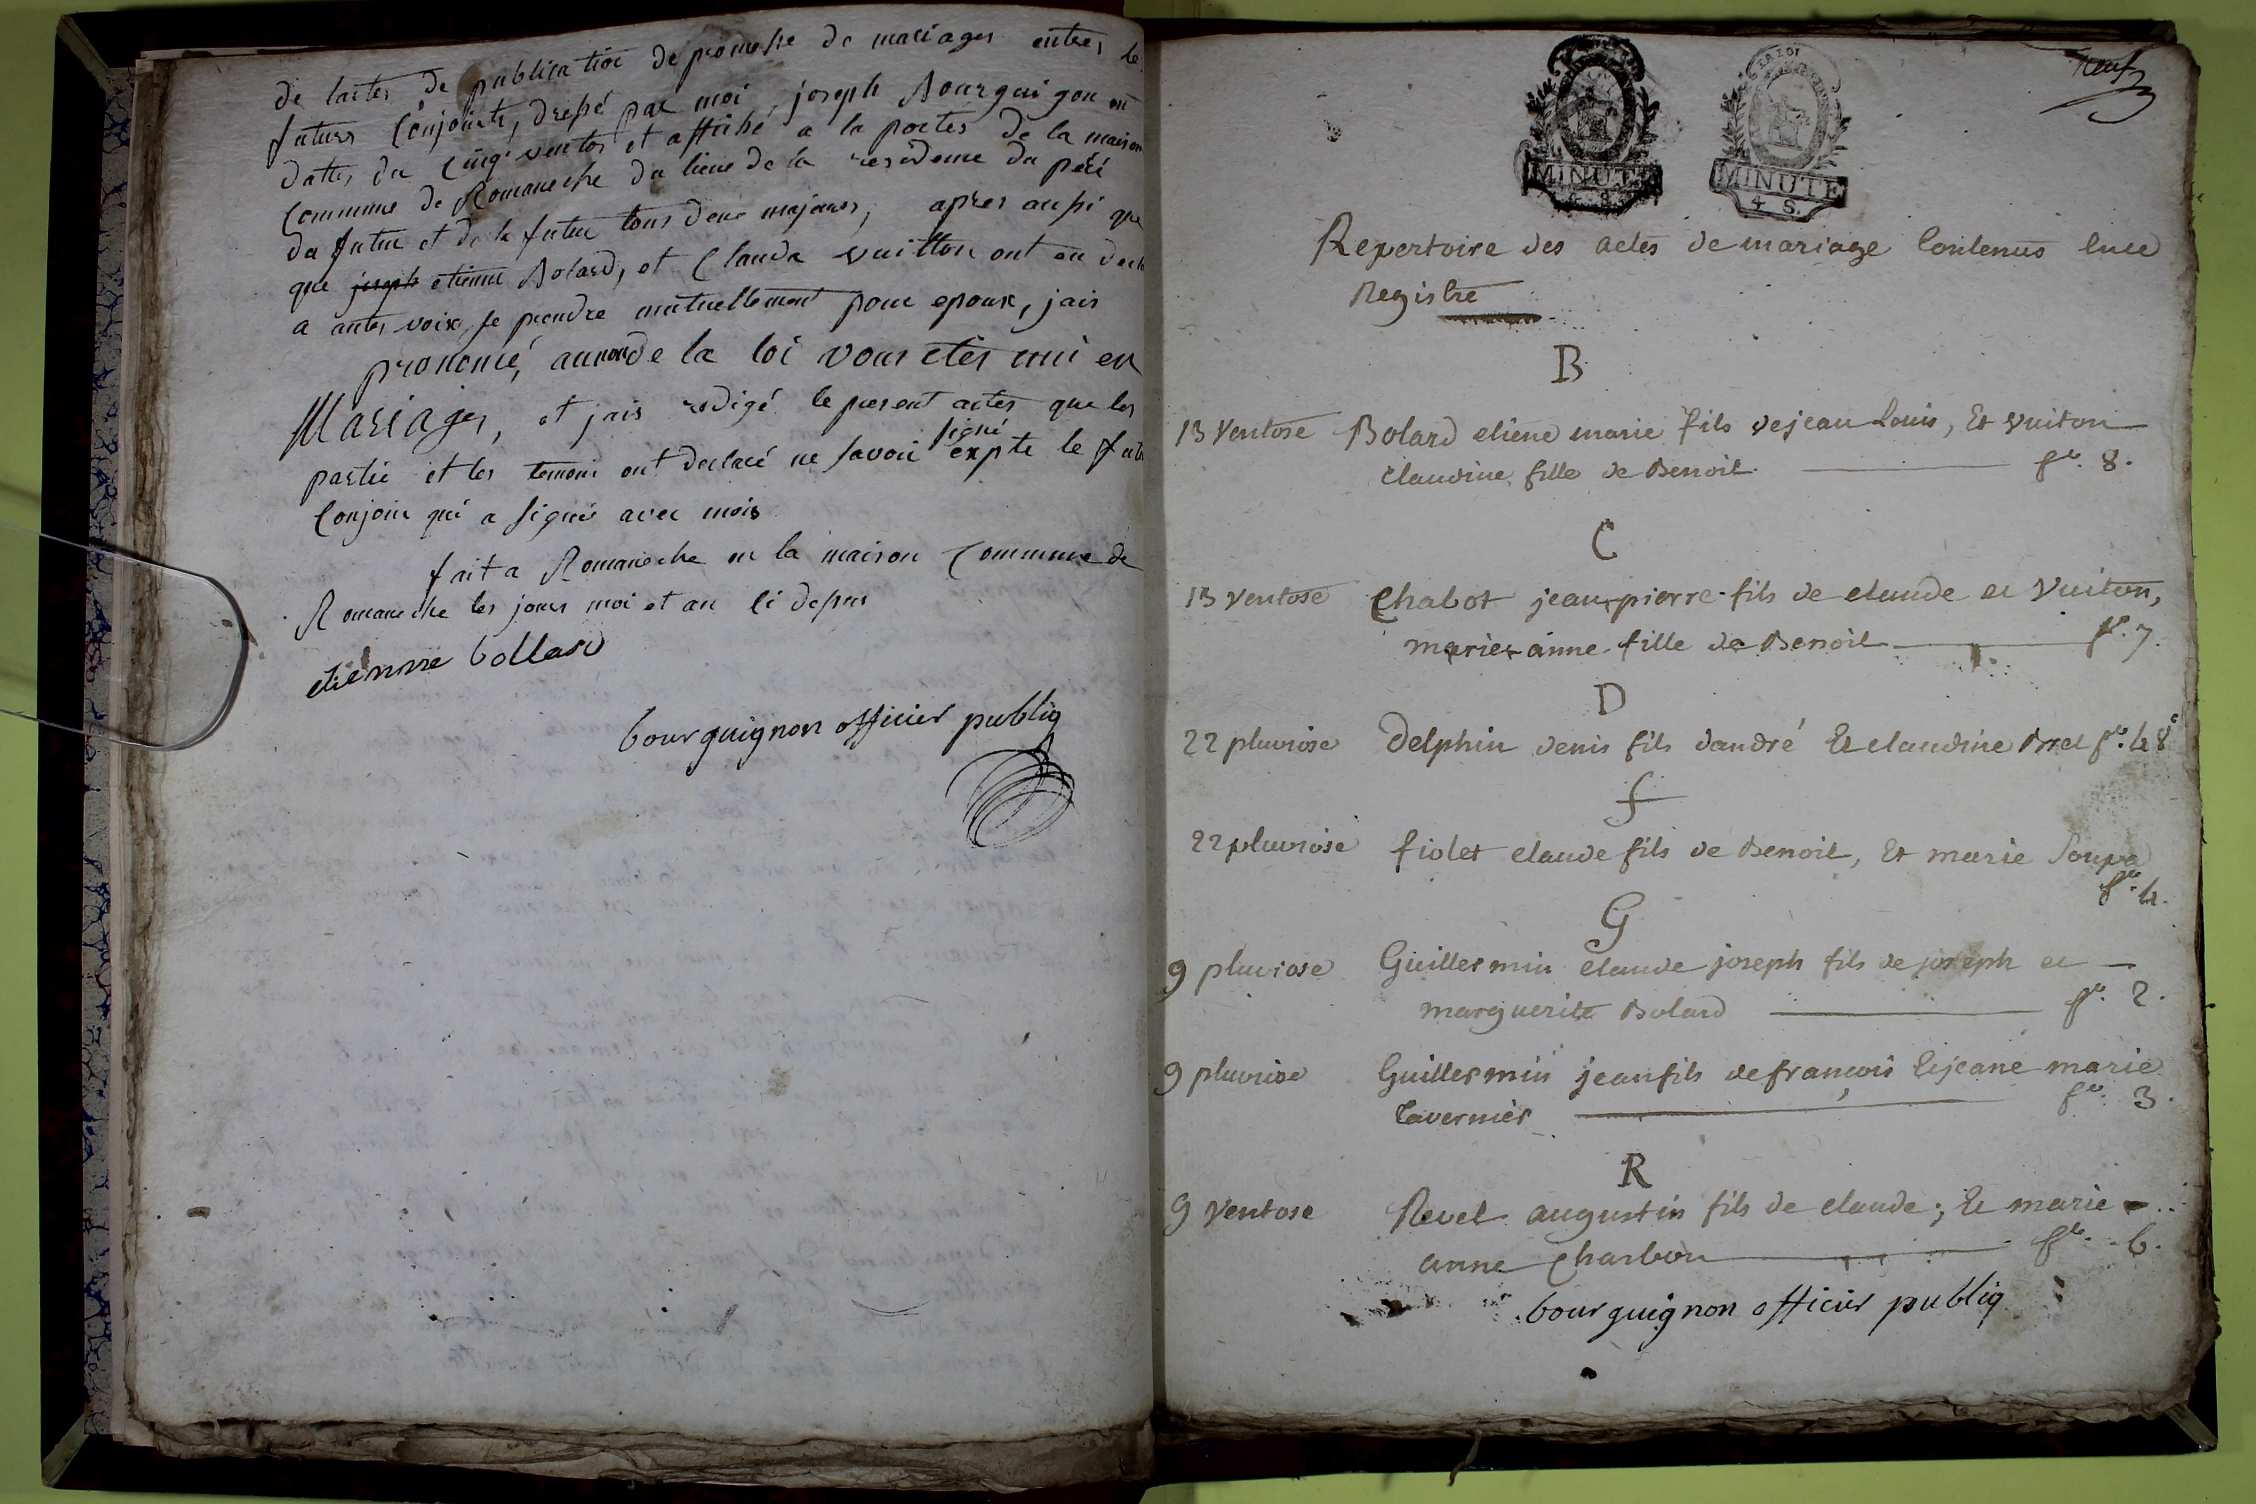 de lactes de publication de promesse de mariages entres le
futurs Conjoints, dressé par moi, joseph Bourguigon en
dattes du Cinq ventos et affiché a la portes de la maison
Commune de Romaneche du lieu de la residence du peré
du futur et de la futur tous deux majeurs, apres aussi que
que joseph etienne Bolard, et Clauda vuitton ont eu
a autes voix, se prendre mutuellement pour epoux, jais
prononcé, au nom de la loi vous etes uni en
Mariages, et jais redigé le present actes que les
partié et les temoins ont declaré ne savoir signé expte le futu
Conjoin qui a signé avec mois
fait a Romaneche en la maison Commune de
Romaneche les jours moi et an Ci dessus
etienne bollard
bourguignon officier publiq
neuf
MINUTE
4 S.
MINUTE
4 S.
Repertoire des actes de mariage Contenus ence
Registre
B
13 Ventose Bolard etiene marie fils de jean Louis, Et vuiton
Claudine fille de Benoit fo. 8.
C
13 Ventose Chabot jean-pierre fils de claude et Vuiton,
marie-anne fille de Benoit fo. 7.
D
22 pluviose Delphin denis fils dandré Et claudine fo. 4
f
22 pluviose fiolet claude fils de Benoit, Et marie
fo. 4.
G
9 pluviose Guillermin claude joseph fils de joseph et
marguerite Bolard fo. 2.
9 pluviose Guillermin jean fils de francois Et jeane marie
tavernier fo. 3.
R
9 Ventose Revel augustin fils de claude; Et marie
anne Charbon fo. 6.
bourguignon officier publiq